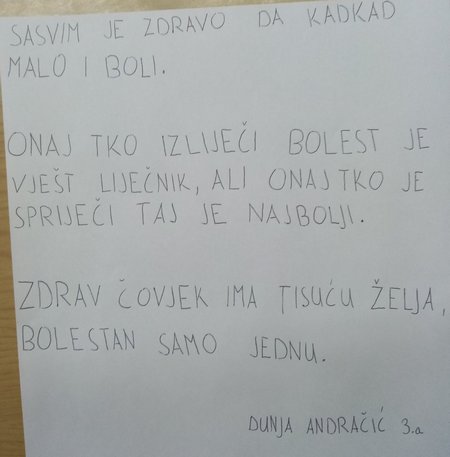 SASVIM JE ZDRAVO DA KADKAD
MALO I BOLI.
ONAJ TKO IZLIJEČI BOLEST JE
VJEŠT LIJEČNIK, ALI ONAJ TKO JE
SPRIJEČI TAJ JE NAJBOLJI.
ZDRAV ČOVJEK IMA TISUĆU ŽELJA,
BOLESTAN SAMO JEDNU.
DUNJA ANDRAČIĆ 3.a